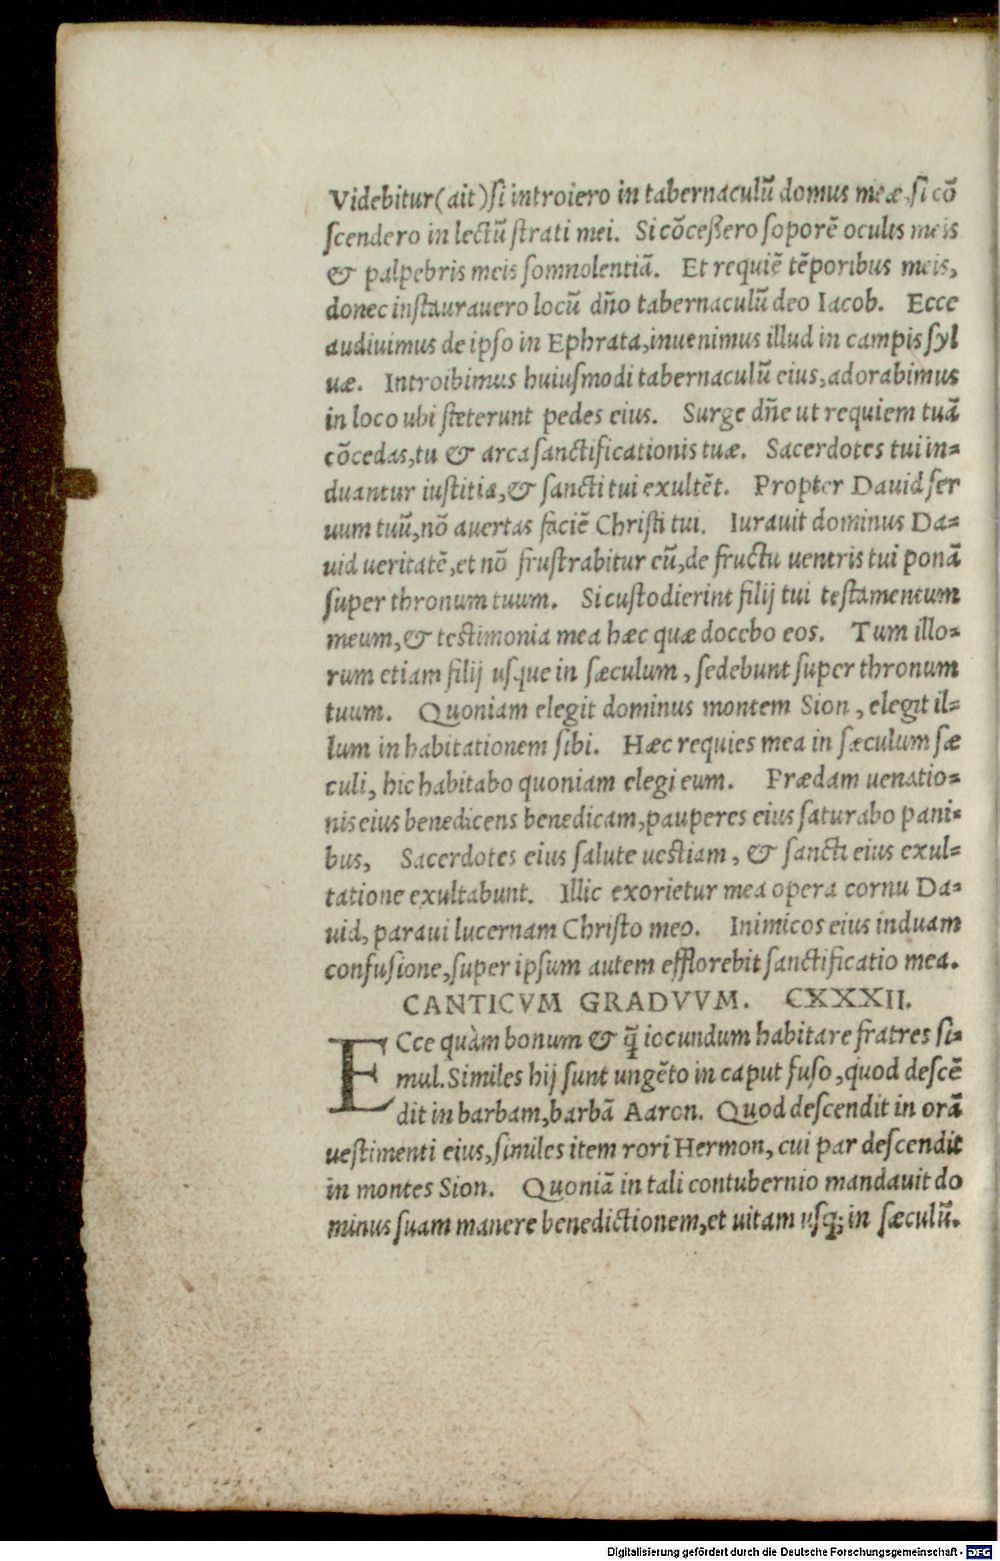 Videbitur(ait)ſi introiero in tabernaculū domus meæ, ſi cō
ſcendero in lectū ſtrati mei. Si cōceßero ſoporē oculis meis
& palpebris meis ſomnolentiā. Et requiē tēporibus meis,
donec inſtaurauero locū dño tabernaculū deo Iacob. Ecce
audiuimus de ipſo in Ephrata,inuenimus illud in campis ſyl
uæ. Introibimus huiuſmodi tabernaculū eius,adorabimus
in loco ubi ſteterunt pedes eius. Surge dñe ut requiem tuā
cōcedas,tu & arca ſanctificationis tuæ. Sacerdotes tui in=
duantur iuſtitia,& ſancti tui exultēt. Propter Dauid ſer
uum tuū,nō auertas faciē Chriſti tui. Iurauit dominus Da=
uid ueritatē,et nō fruſtrabitur eū,de fructu uentris tui ponā
ſuper thronum tuum. Si cuſtodierint filij tui teſtamentum
meum,& teſtimonia mea hæc quæ docebo eos. Tum illo=
rum etiam filij uſque in ſæculum, ſedebunt ſuper thronum
tuum. Quoniam elegit dominus montem Sion, elegit il=
lum in habitationem ſibi. Hæc requies mea in ſæculum ſæ
culi, hic habitabo quoniam elegi eum. Prædam uenatio=
nis eius benedicens benedicam,pauperes eius ſaturabo pani=
bus, Sacerdotes eius ſalute ueſtiam, & ſancti eius exul=
tatione exultabunt. Illic exorietur mea opera cornu Da=
uid, paraui lucernam Chriſto meo. Inimicos eius induam
confuſione,ſuper ipſum autem efflorebit ſanctificatio mea.
CANTICVM GRADVVM. CXXXII.
ECce quàm bonum & q̄ iocundum habitare fratres ſi=
mul. Similes hij ſunt ungēto in caput fuſo, quod deſcē
dit in barbam,barbā Aaron. Quod deſcendit in orā
ueſtimenti eius,ſimiles item rori Hermon, cui par deſcendit
in montes Sion. Quoniā in tali contubernio mandauit do
minus ſuam manere benedictionem,et uitam uſq; in ſæculū.
Digitalisierung gefördert durch die Deutsche Forschungsgemeinschaft - DFG